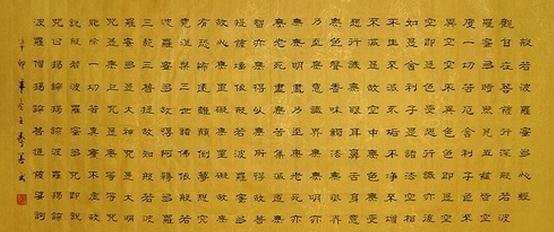 般若波羅蜜多心經
觀自在菩薩行深般若波
羅蜜多時照見五蘊皆空
度一切苦厄舍利子色不
異空空不異色色即是空
空即是色受想行識亦復
如是舍利子是諸法空相
不生不滅不垢不淨不增
不減是故空中無色無受
想行識無眼耳鼻舌身意
無色聲香味觸法無眼界
乃至無意識界無無明亦
無無明盡乃至無老死亦
無老死盡無苦集滅道無
智亦無得以無所得故菩
提薩埵依般若波羅蜜多
故心無罣礙無罣礙故無
有恐怖遠離顛倒夢想究
竟涅槃三世諸佛依般若
波羅蜜多故得阿耨多羅
三藐三菩提故知般若波
羅蜜多是大神咒是大明
咒是無上咒是無等等咒
能除一切苦真實不虛故
說般若波羅蜜多咒即說
咒曰揭諦揭諦波羅揭諦
波羅僧揭諦菩提薩婆訶
辛卯年冬王